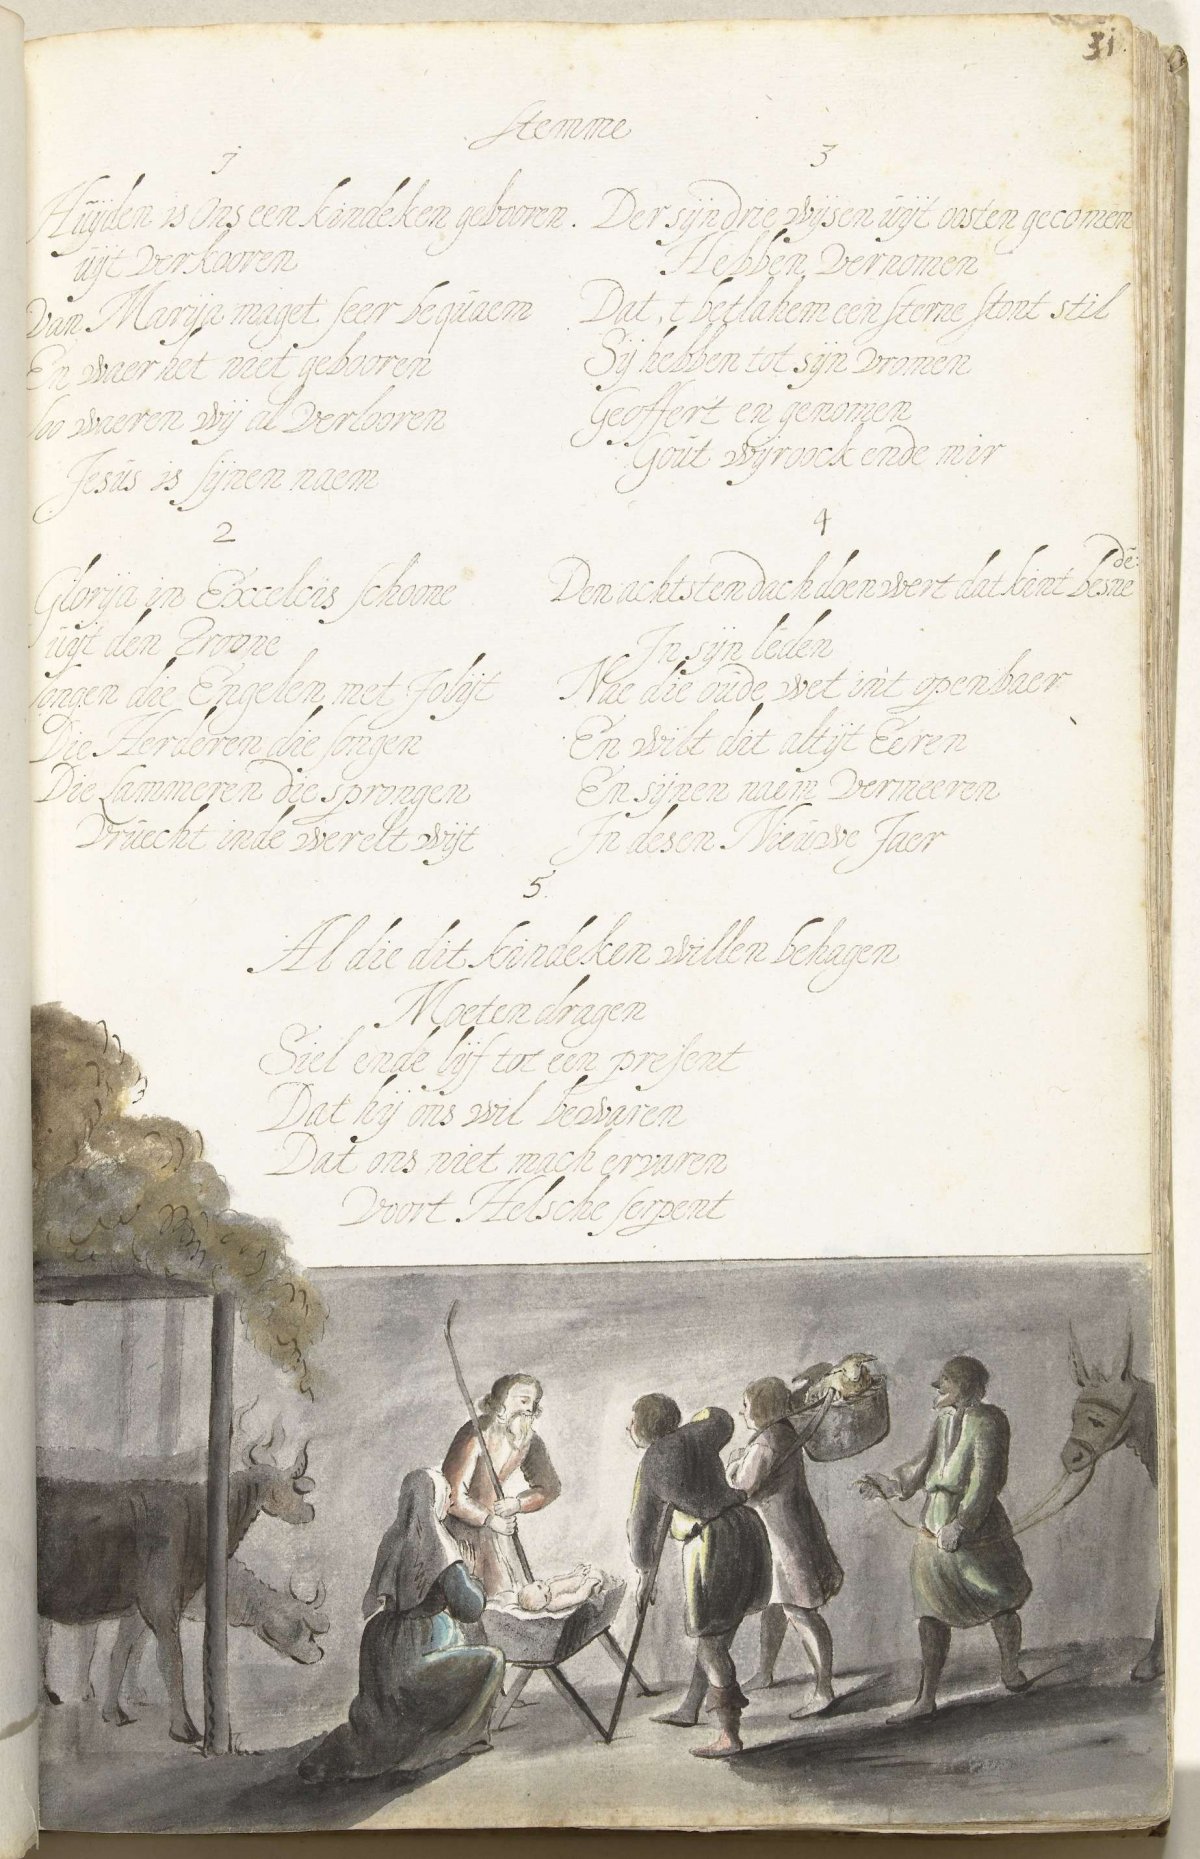 31
Stemme
1
Huijden is ons een kindeken gebooren
uijt verkooren
Van Marija maget seer bequaem
En waer het niet gebooren
soo waeren wij al verlooren
Jesus is sijnen naem
2
Glorija in Excelcis schoone
uijt den Troone
songen die Engelen met Jolijt
Die Herderen die songen
Die Lammeren die sprongen
Vruecht inde werelt wijt
3
Der sijn drie wijsen uijt oosten gecomen
Hebben vernomen
Dat, t betlahem een sterne stont stil
Sij hebben tot sijn vromen
Geoffert en genomen
Gout wijroock ende mir
4
Den achtsten dach doen wert dat kint besne
dē:
In sijn leden
Nae die oude wet int openbaer
En wilt dit altijt Eeren
En sijnen naem vermeeren
In desen Nieuwe Jaer
5
Al die dit kindeken willen behagen
Moeten dragen
Siel ende lijf tot een present
Dat hij ons wil bewaren
Dat ons niet mach ervaren
Voort Helsche serpent